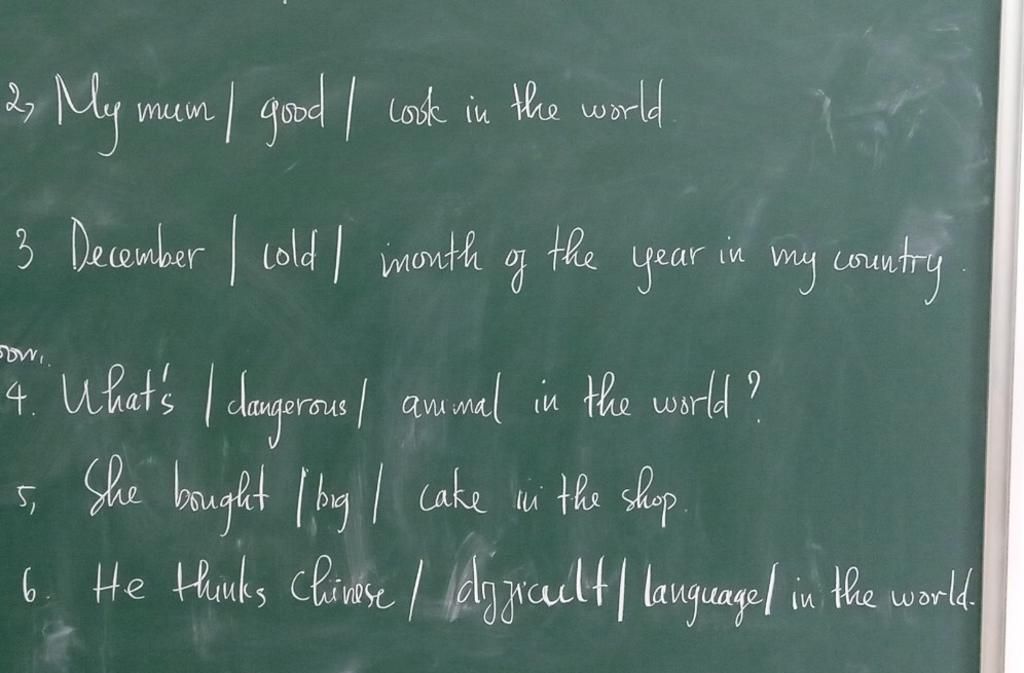 2, My mum / good / cook in the world
3 December / cold / month of the year in my country.
4. What's / dangerous / animal in the world?
5, She bought / big / cake in the shop.
6. He thinks Chinese / difficult / language / in the world.